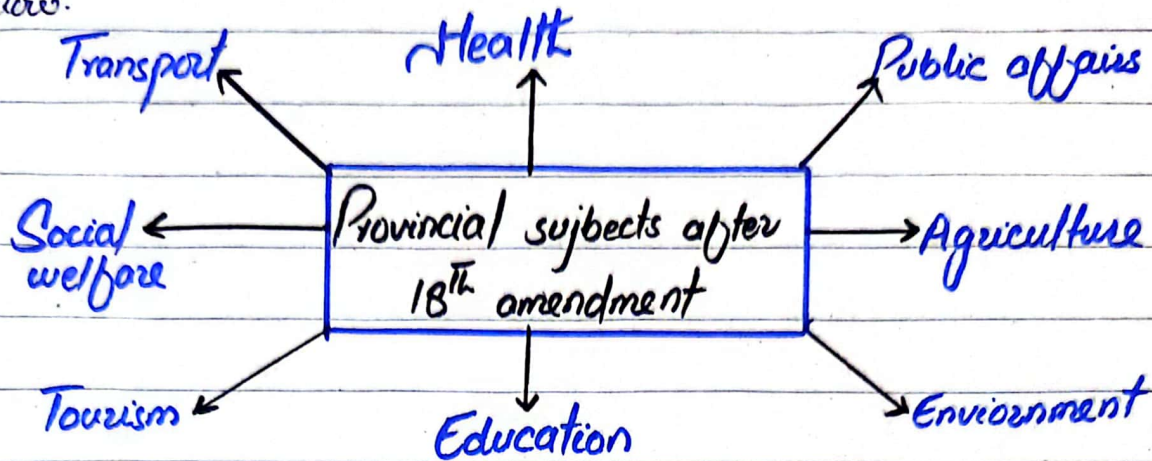 Transport
Health
Public affairs
Social
welfare
Provincial sujbects after
18th amendment
Agriculture
Tourism
Education
Enviornment